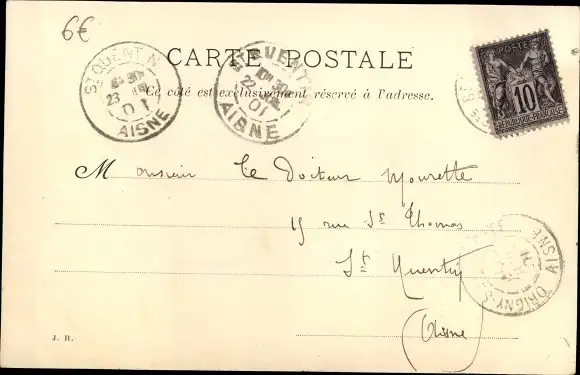 6€
CARTE POSTALE
Ce côté est exclusivement réservé à l'adresse.
ST QUENTIN
23
01
AISNE
ST QUENTIN
23
01
AISNE
POSTES
10
RÉPUBLIQUE FRANÇAISE
Monsieur le Docteur Mourette
15 rue St Thomas
St Quentin
(Aisne)
ORIGNY-S
AISNE
J. R.